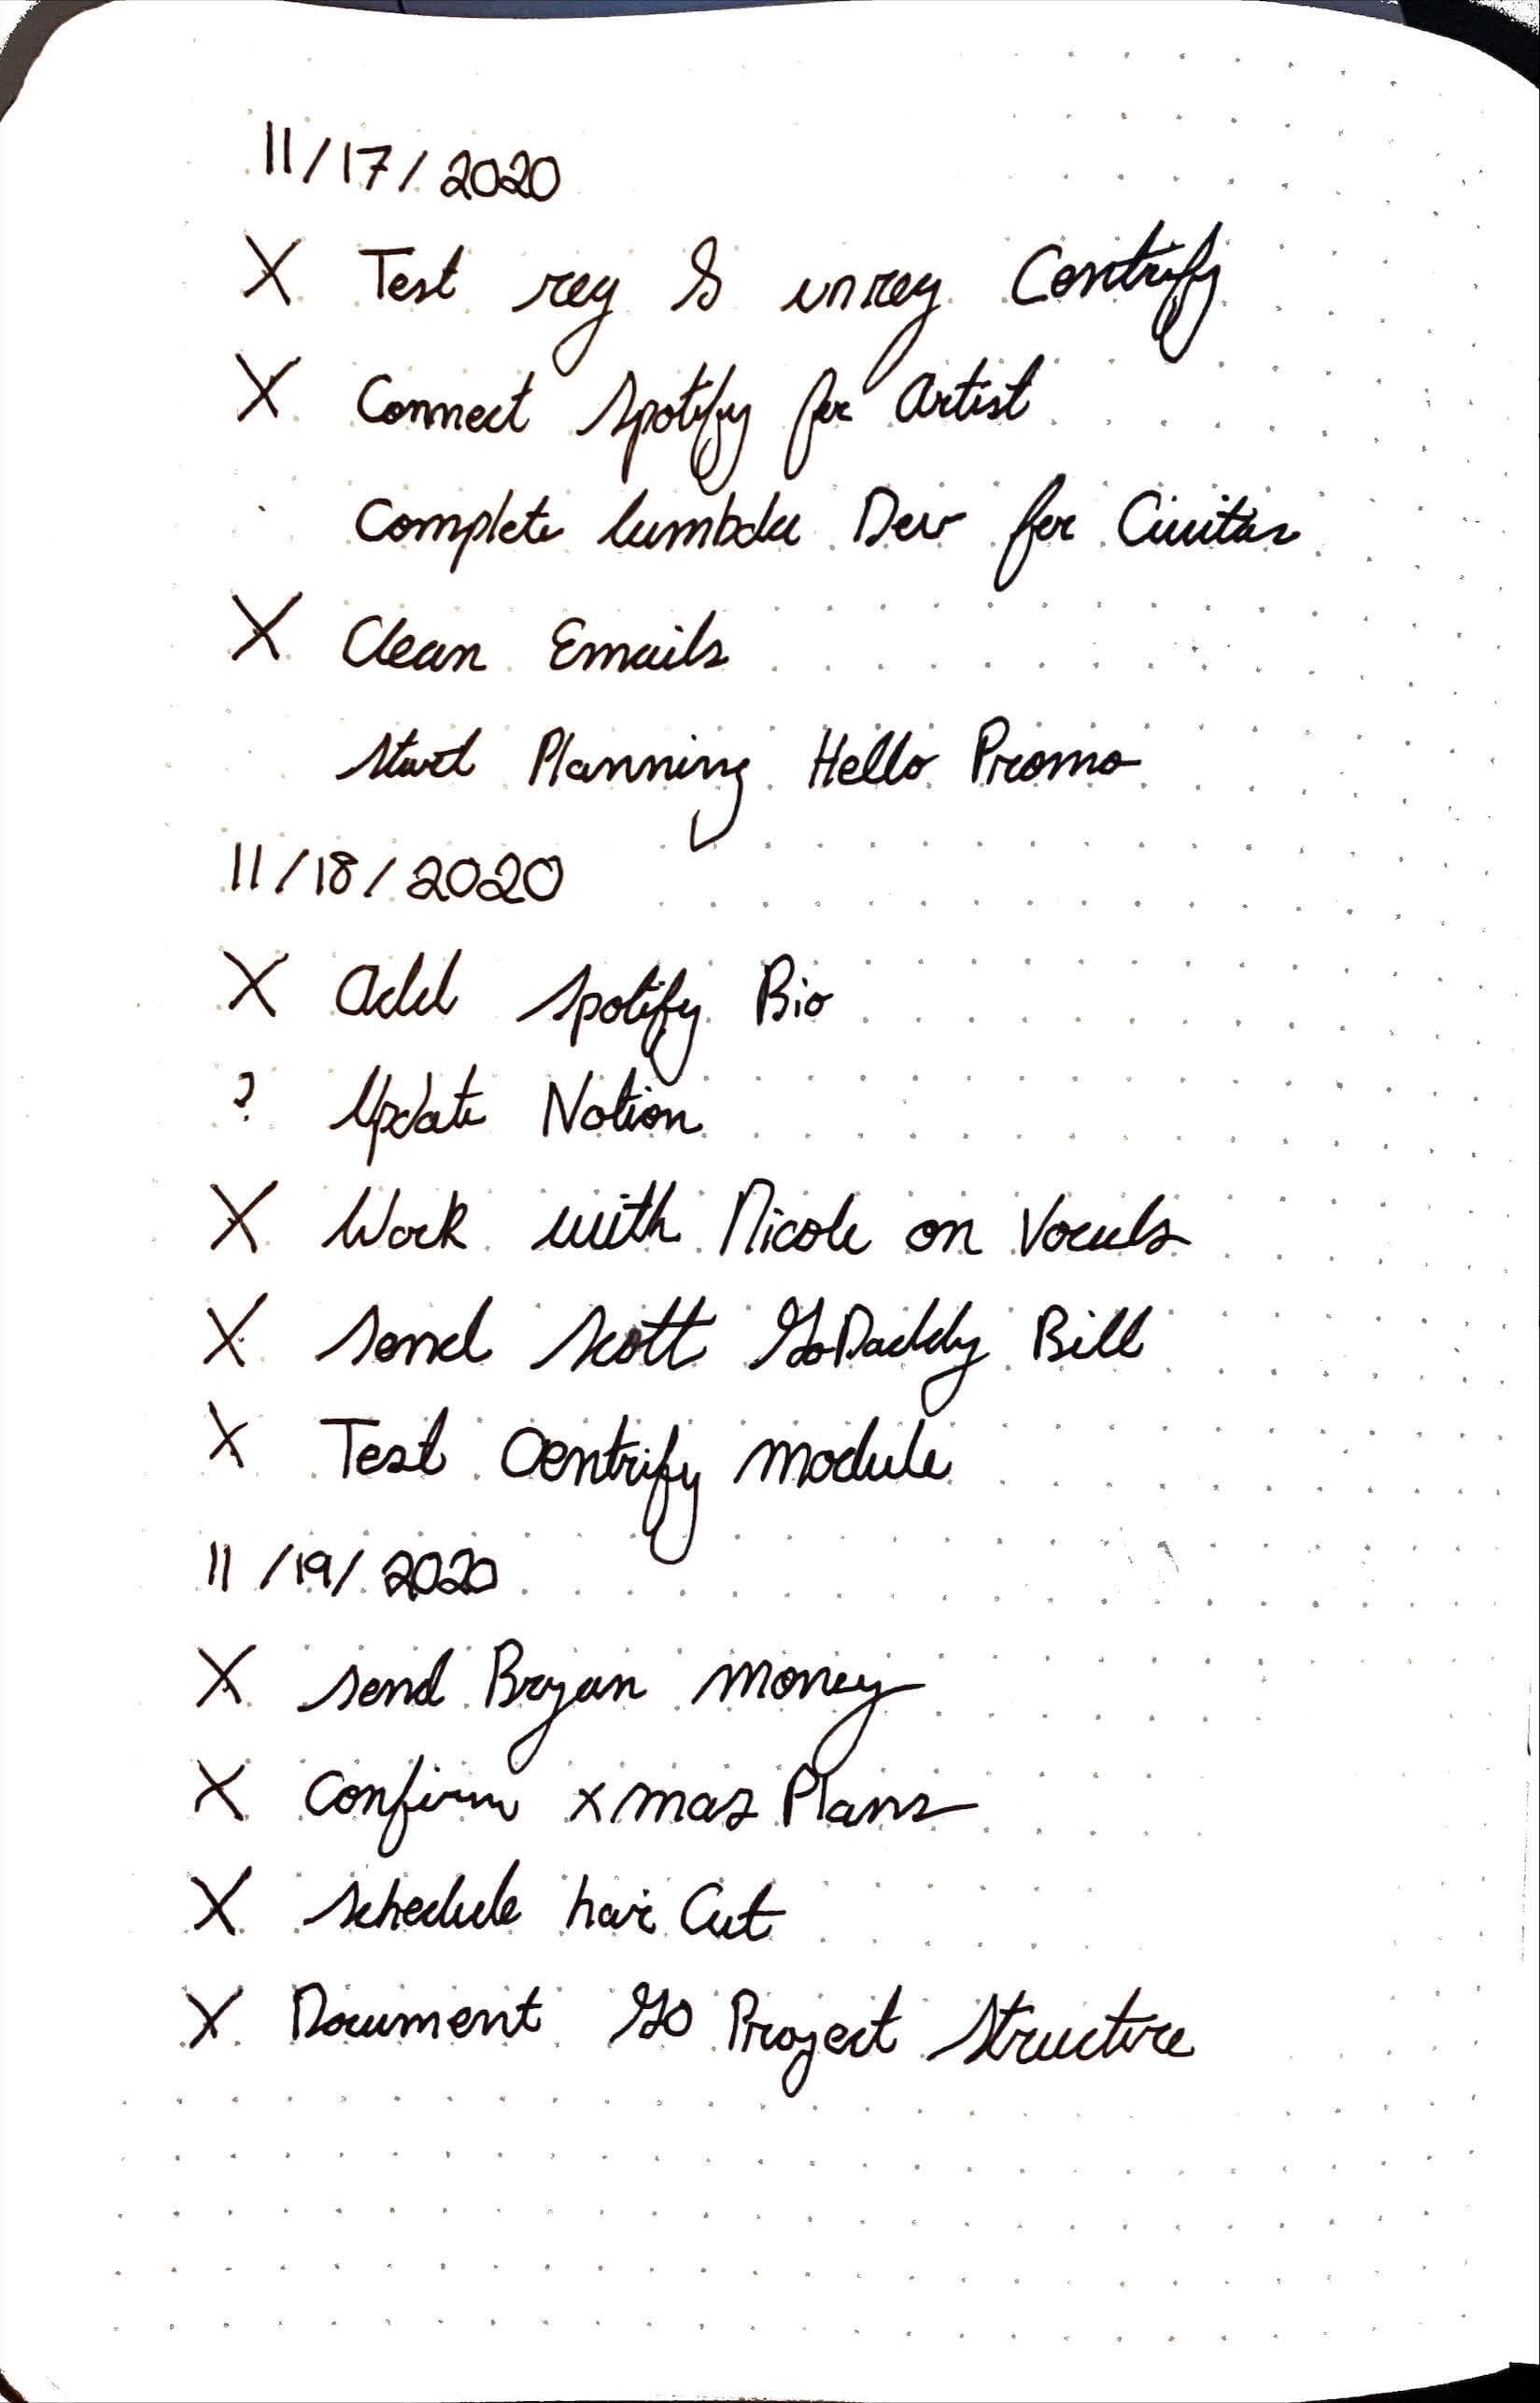 11/17/2020
X Test reg & unreg Centrify
X Connect Spotify for Artist
Complete lambda Dev for Civitas
X Clean Emails
Start Planning Hello Promo
11/18/2020
X Add Spotify Bio
? Update Notion
X Work with Nicole on Vocals
X Send Scott GoDaddy Bill
X Test Centrify module
11/19/2020
X Send Bryan money
X Confirm xmas Plans
X Schedule hair Cut
X Document Go Project Structure